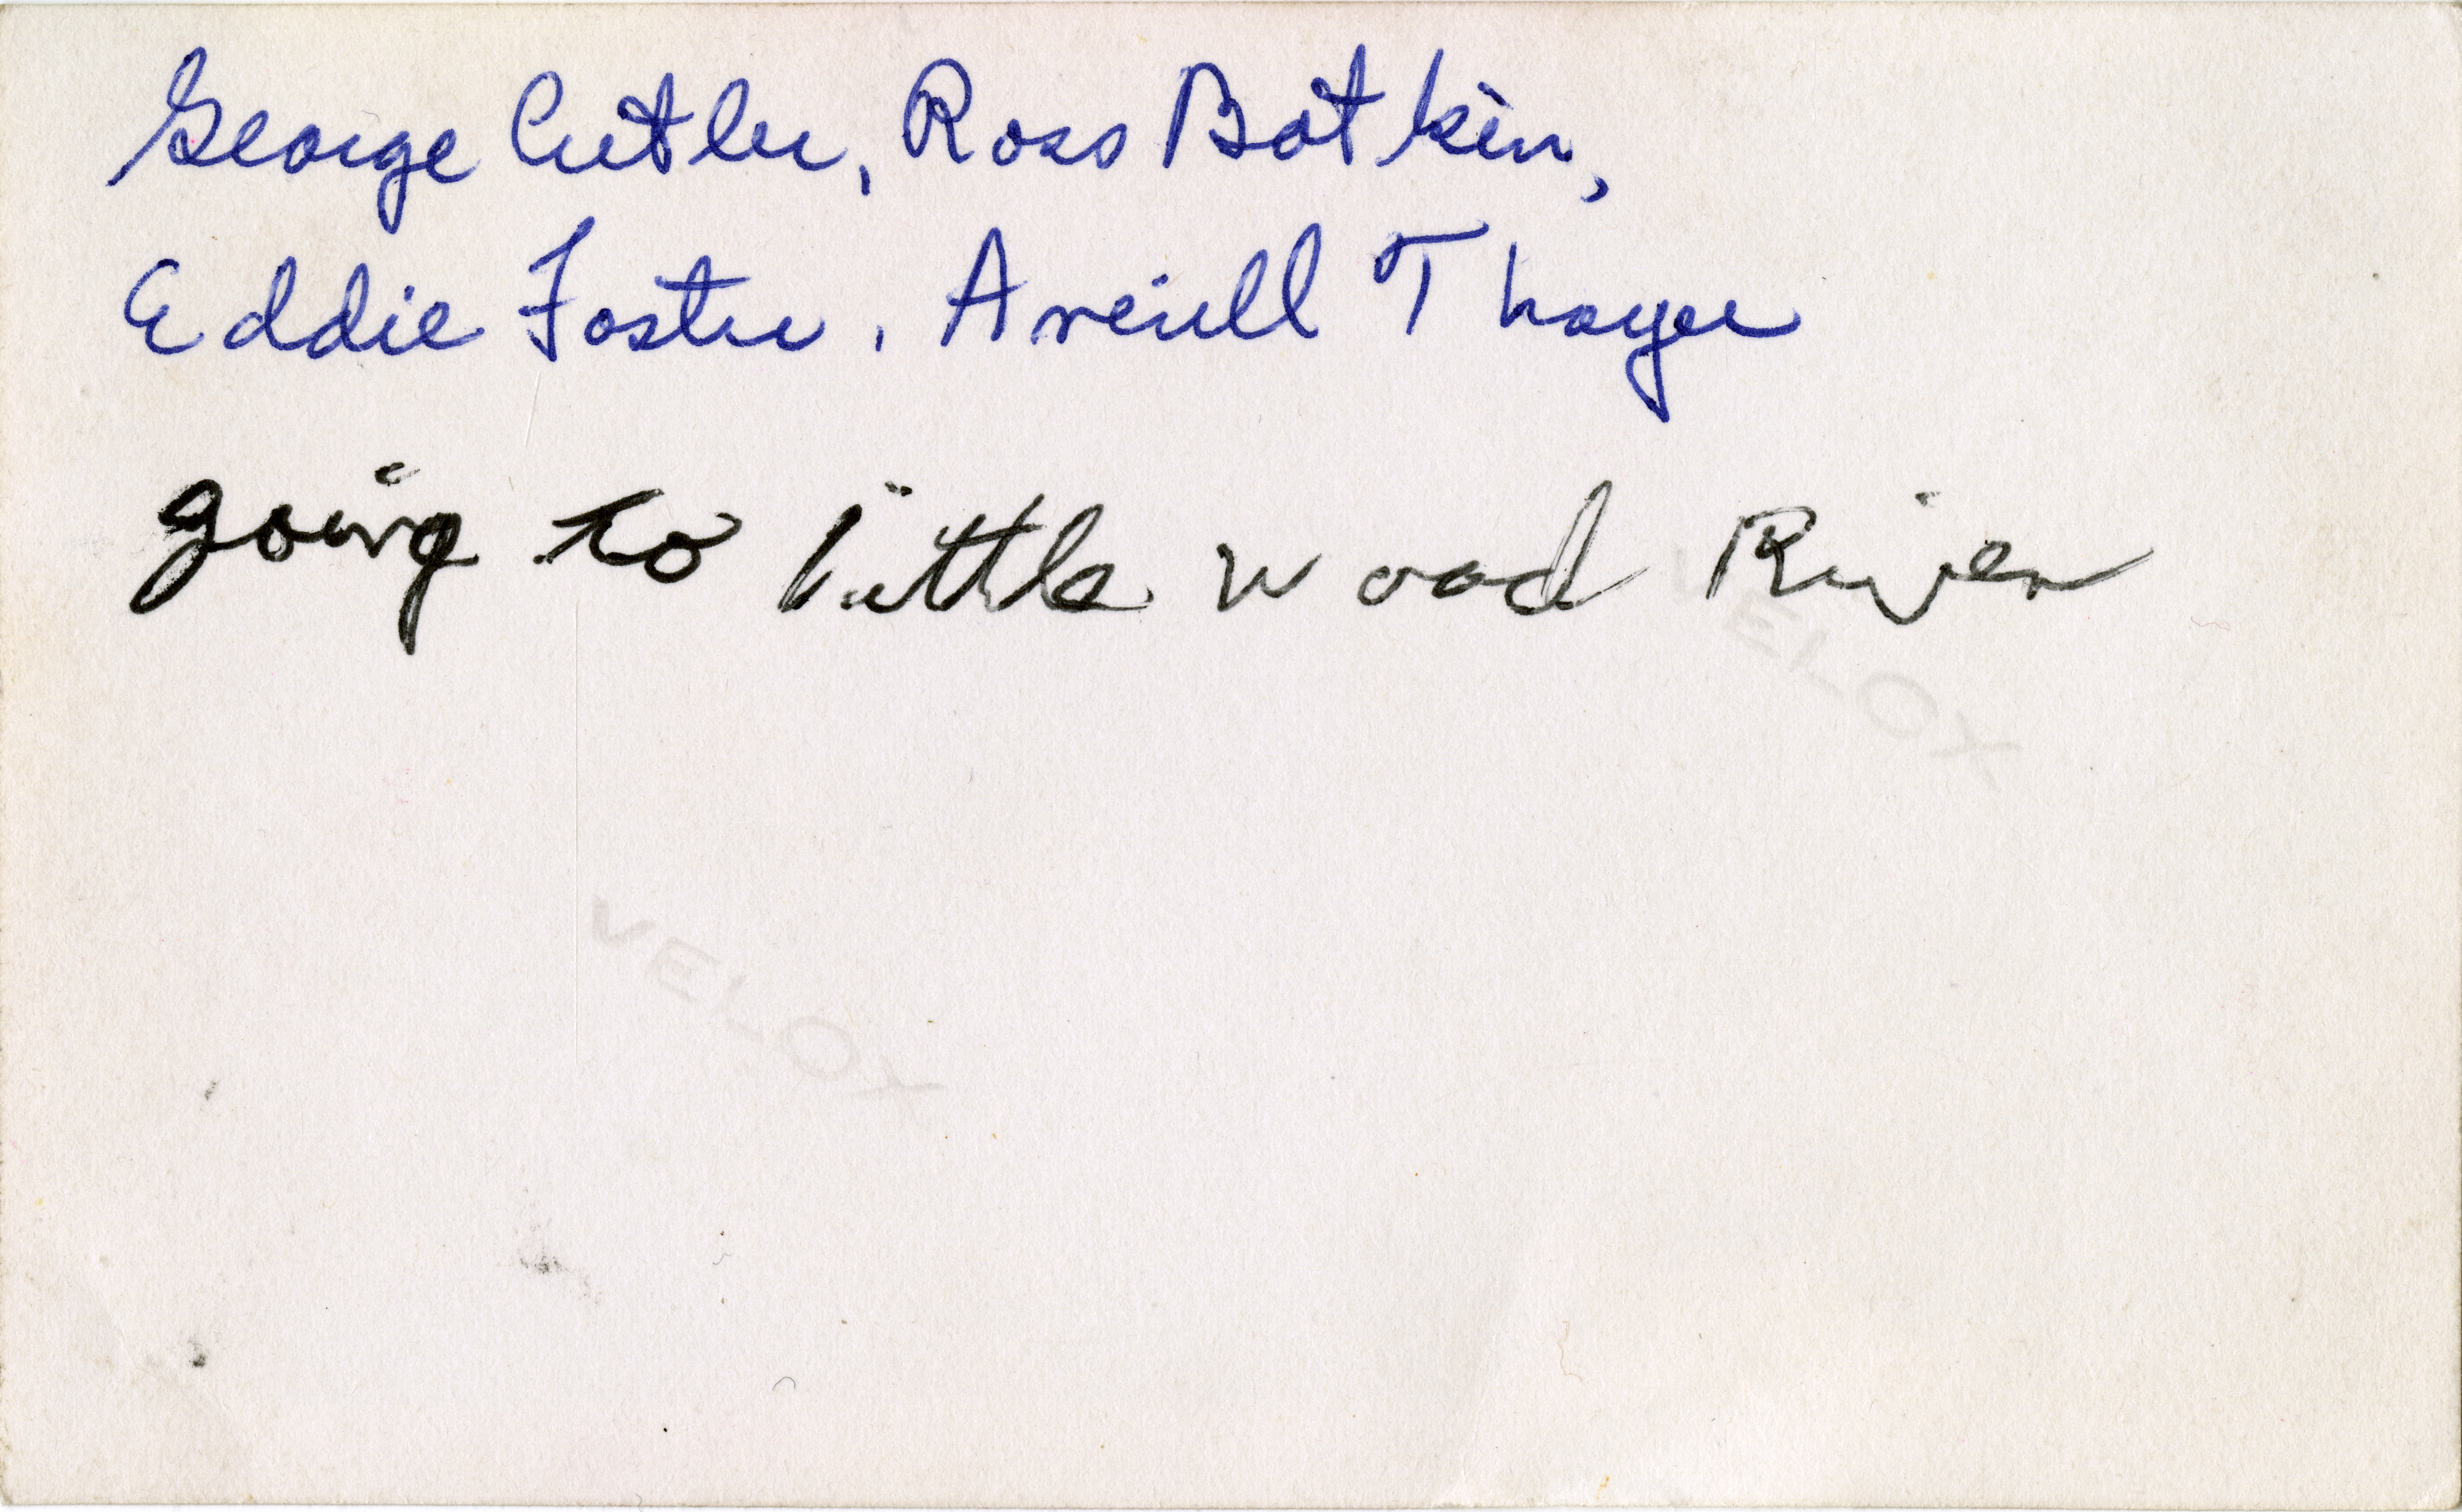 George Cutler, Ross Botkin,
Eddie Foster, Averell Thayer
going to little wood River
VELOX
VELOX